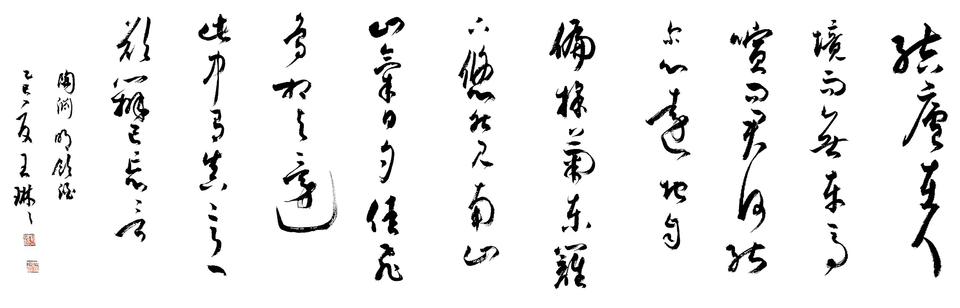 結廬在人
境而無車馬
喧問君何能
尔心遠地自
偏採菊東籬
下悠然見南山
山氣日夕佳飛
鳥相與還
此中有真意
欲辨已忘言
陶渊明飲酒
乙巳夏王琳